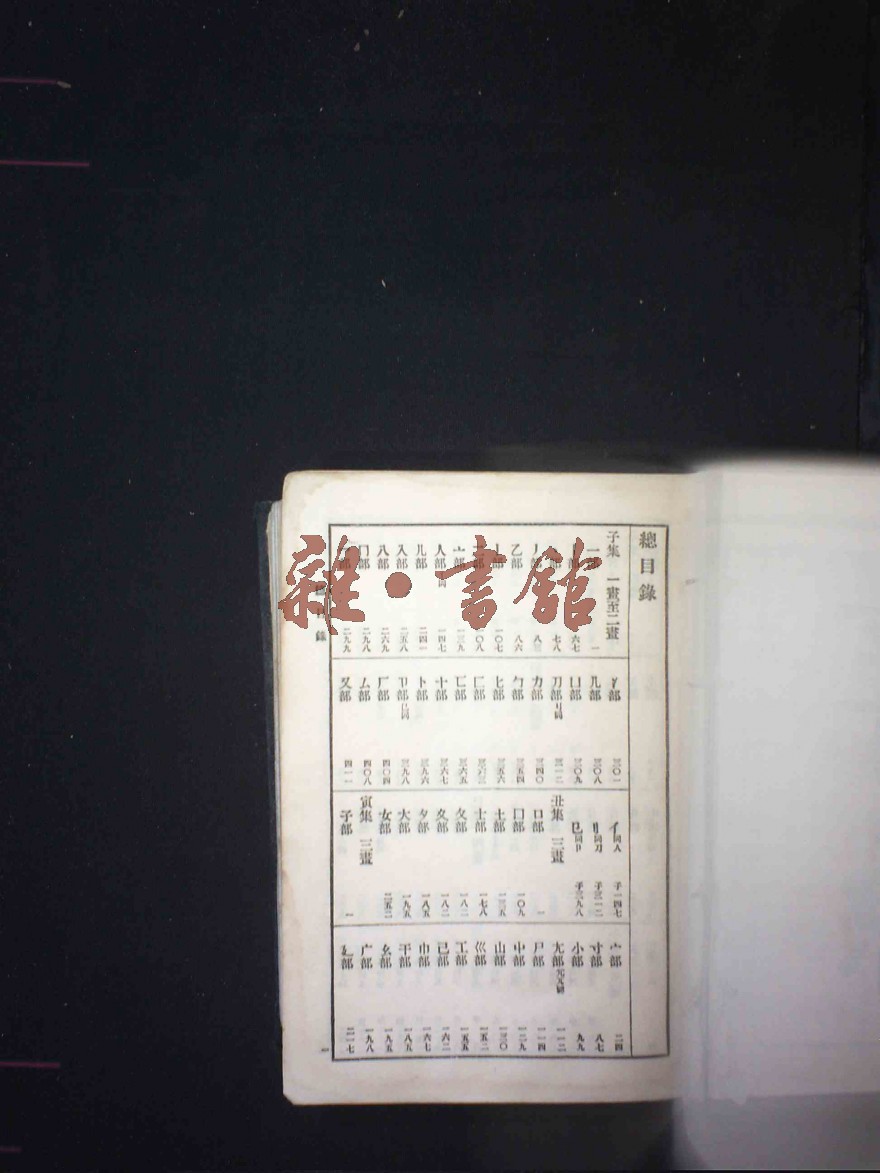 總目錄
子集 一畫至二畫
一部 一
六七
七八
丿部 八三
乙部 八六
亅部 一〇七
二部 一〇八
亠部 一三九
人部 一四七
儿部 二四一
入部 二五八
八部 二六九
冂部 二九八
二九九
冫部 三〇一
几部 三〇八
凵部 三〇九
刀部 刂同 三一二
力部 三四〇
勹部 三五四
匕部 三五六
匚部 三六三
匸部 三六五
十部 三六七
卜部 三九六
卩部 㔾同 三九八
厂部 四〇四
厶部 四〇八
又部 四一一
亻同人 子一四七
刂同刀 子三一二
㔾同卩 子三九八
丑集 三畫
口部 一
囗部 一〇九
土部 一三五
士部 一七八
夂部 一八二
夊部 一八二
夕部 一八五
大部 一九五
女部 二五二
寅集 三畫
子部 一
宀部 二四
寸部 八七
小部 九九
尢部 一一二
尸部 一一四
屮部 一二九
山部 一三〇
巛部 一五二
工部 一五五
己部 一六二
巾部 一六七
干部 一八五
幺部 一九五
广部 一九八
廴部 二一七
雜·書館